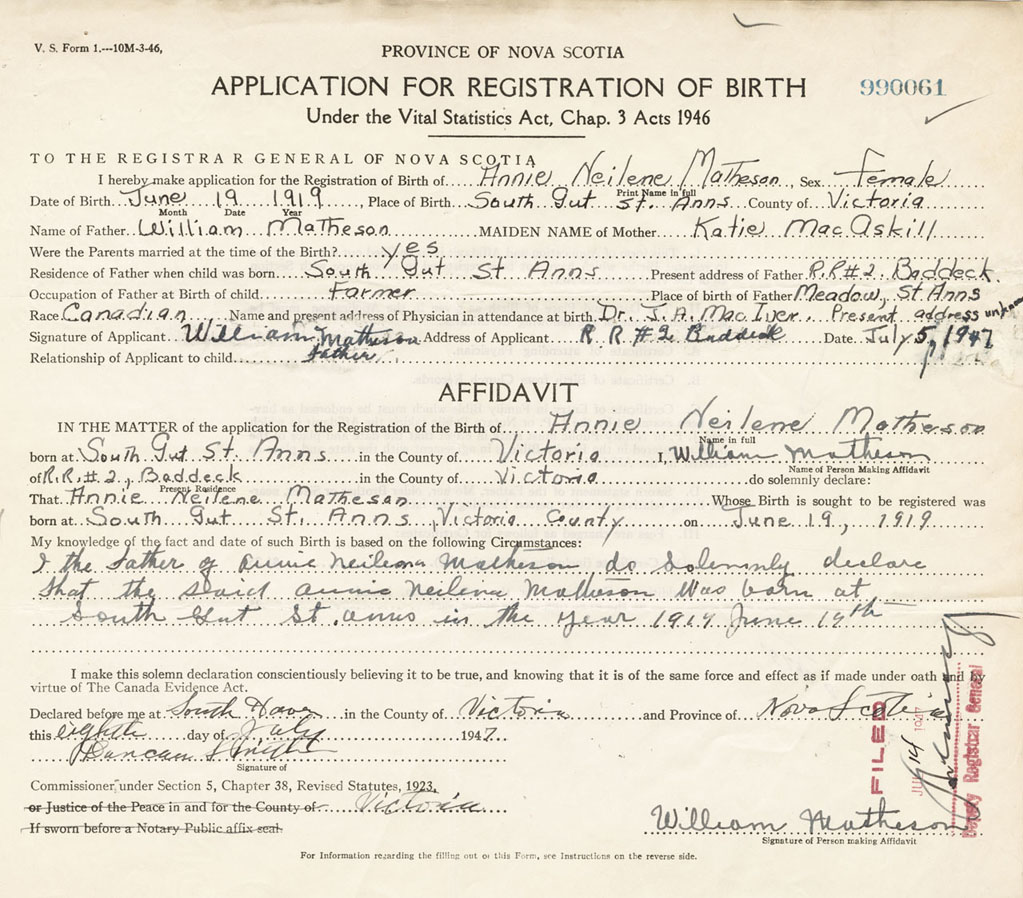 V. S. Form 1.---10M-3-46,
PROVINCE OF NOVA SCOTIA
APPLICATION FOR REGISTRATION OF BIRTH
990061
Under the Vital Statistics Act, Chap. 3 Acts 1946
TO THE REGISTRAR GENERAL OF NOVA SCOTIA
I hereby make application for the Registration of Birth of Annie Neilene Matheson, Sex Female
Print Name in full
Date of Birth June 19 1919, Place of Birth South Gut St. Anns County of Victoria
Month Date Year
Name of Father William Matheson MAIDEN NAME of Mother Katie MacAskill
Were the Parents married at the time of the Birth? yes
Residence of Father when child was born South Gut St Anns Present address of Father R.R#2 Baddeck.
Occupation of Father at Birth of child Farmer Place of birth of Father Meadow, St. Anns
Race Canadian, Name and present address of Physician in attendance at birth. Dr. J. A. MacIver. Present address unknown
Signature of Applicant William Matheson Address of Applicant R R #2 Baddeck Date July 5, 1947
Relationship of Applicant to child father
AFFIDAVIT
IN THE MATTER of the application for the Registration of the Birth of Annie Neilene Matheson
Name in full
born at South Gut St Anns in the County of Victoria I, William Matheson
Name of Person Making Affidavit
of R.R.#2, Baddeck in the County of Victoria do solemnly declare:
Present Residence
That Annie Neilene Matheson Whose Birth is sought to be registered was
born at South Gut St. Anns, Victoria County on June 19, 1919
My knowledge of the fact and date of such Birth is based on the following Circumstances:
I the father of Annie Neilena Matheson do Solemnly declare
that the Said Annie Neilena Matheson Was born at
South Gut St. Anns in the year 1919 June 19th
I make this solemn declaration conscientiously believing it to be true, and knowing that it is of the same force and effect as if made under oath and by
virtue of The Canada Evidence Act.
Declared before me at South Haven in the County of Victoria and Province of Nova Scotia
this eighth day of July 1947
Duncan Smith
Signature of
Commissioner under Section 5, Chapter 38, Revised Statutes, 1923,
or Justice of the Peace in and for the County of Victoria
If sworn before a Notary Public affix seal.
FILED
14
Deputy Registrar General
William Matheson
Signature of Person making Affidavit
For Information regarding the filling out of this Form, see Instructions on the reverse side.